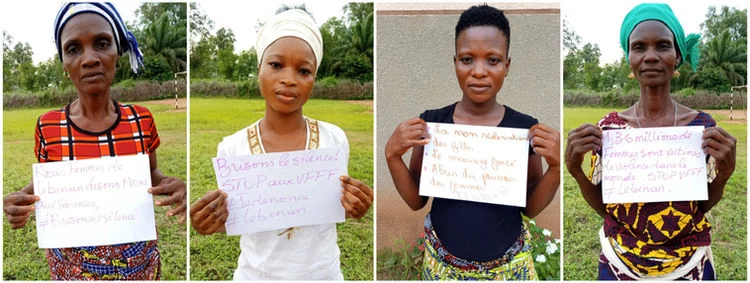 Nous femmes de
Lebenun disons NON
aux violences,
#Brisons le silence.
Brisons le silence!
STOP aux VFFF
#Lebenun
La non scolarisation
des filles
Le mariage forcé
Abus des
des femmes
1,36 millions de
Femmes sont victimes
de violence dans le
monde. STOP VFF
#Lebenun.